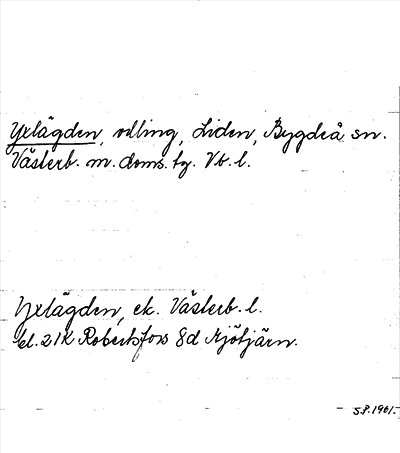 Yxlägden, odling, Liden, Bygdeå sn.
Västerb. m. doms. tg. Vb. l.
Yxlägden, ek. Västerb. l.
bl. 21K Robertsfors 8d Mjötjärn.
S.P. 1961.